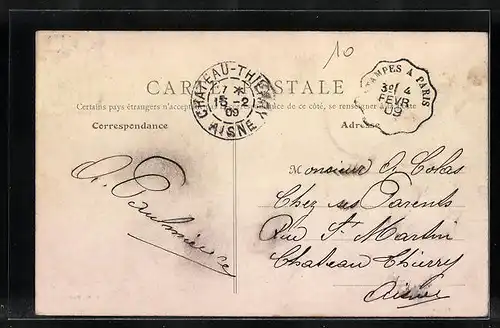 10
CARTE POSTALE
CHATEAU-THIERRY
7 *
15 -2
09
AISNE
ETAMPES A PARIS
3° 4
FEVR
09
Certains pays étrangers n'acceptent de ce côté, se renseigner à la
Correspondance
Adresse
Monsieur Colas
Chez ses Parents
Rue St Martin
Chateau Thierry
Aisne